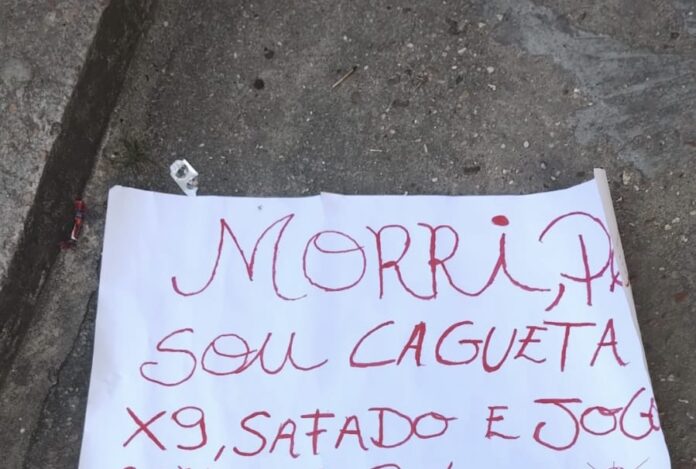 MORRi, Pk
SOU CAGUETA
X9, SAFADO E JOG